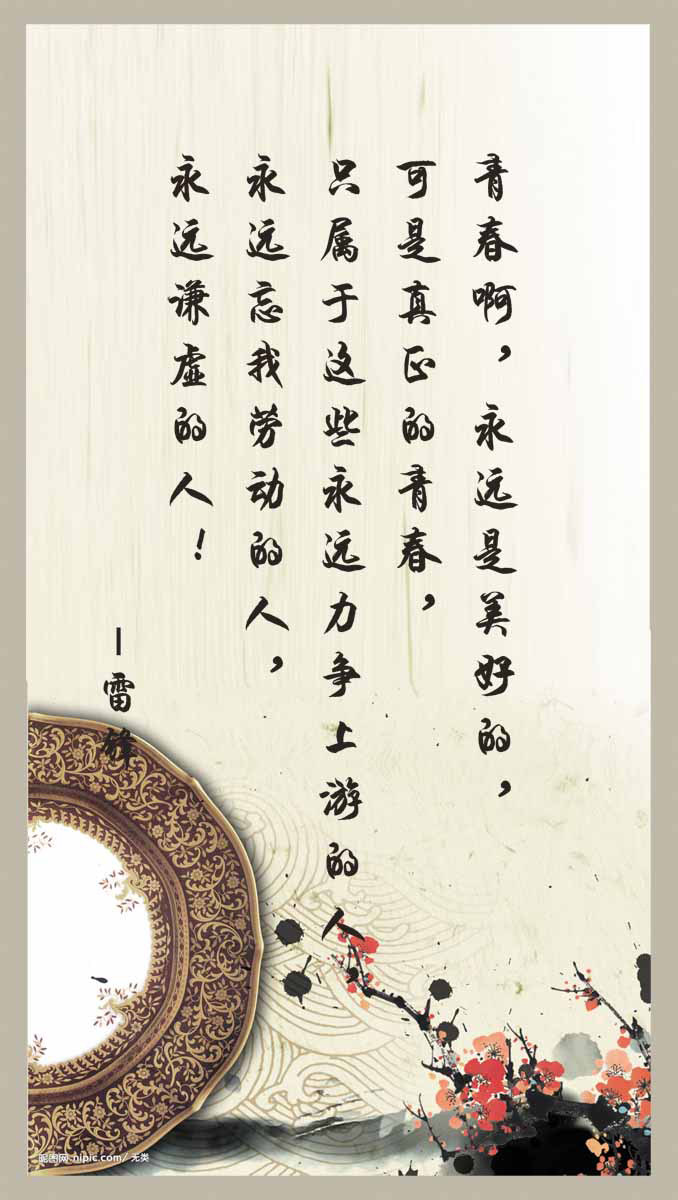 青春啊，永远是美好的，
可是真正的青春，
只属于这些永远力争上游的人，
永远忘我劳动的人，
永远谦虚的人！
—雷锋
昵图网 nipic.com/ 无类